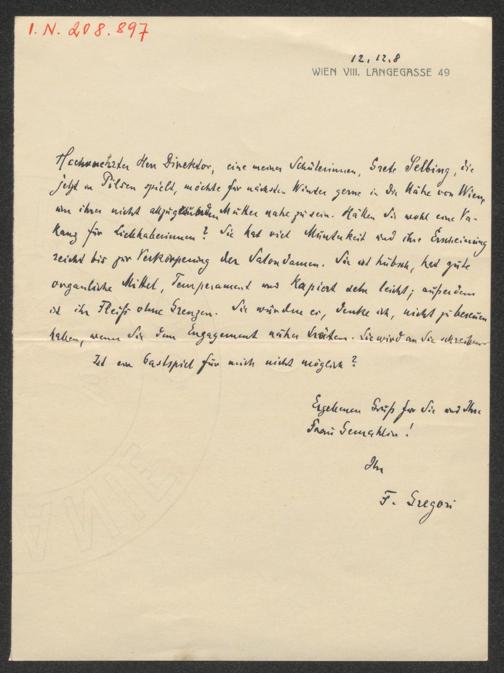 I. N. 208.897
12. 12. 8
WIEN VIII. LANGEGASSE 49
Hochverehrter Herr Direktor, eine meiner Schülerinnen, Grete Selbing, die
jetzt in Pilsen spielt, möchte für nächsten Winter gerne in die Nähe von Wien,
um ihrer nicht allzu Mutter nahe zu sein. Hätten Sie wohl eine Va-
kanz für Liebhaberinnen? Sie hat viel Munterkeit und ihre Erscheinung
reicht bis zur Verkörperung der Salondamen. Sie ist hübsch, hat gute
organliche Mittel, Temperament und kapiert sehr leicht; außerdem
ist ihr Fleiß ohne Grenzen. Sie würden es, denke ich, nicht zu bereuen
haben, wenn Sie dem Engagement näher träten. Sie wird an Sie schreiben.
Ist ein Gastspiel für mich nicht möglich?
Ergebenen Gruß für Sie und Ihre
Frau Gemahlin!
Ihr
F. Gregori